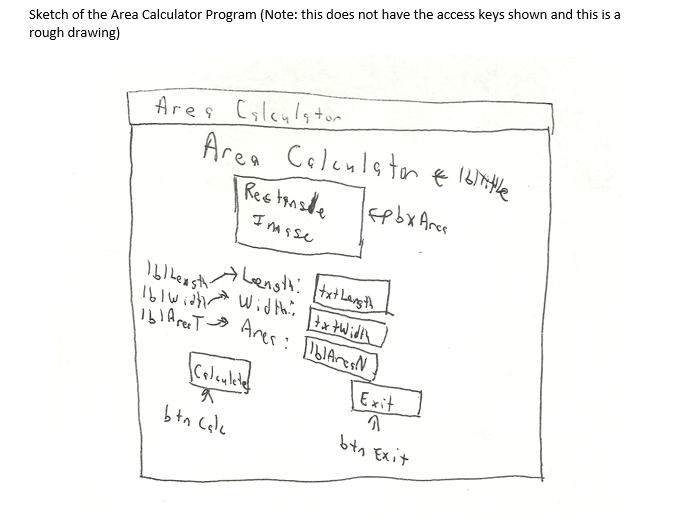 Sketch of the Area Calculator Program (Note: this does not have the access keys shown and this is a
rough drawing)
Area Calculator
Area Calculator ← lblTitle
Rectangle
Image
← pbxArea
lblLength → Length: txtLength
lblWidth → Width: txtWidth
lblAreaT → Area: lblAreaN
Calculate
Exit
btnCalc
btnExit